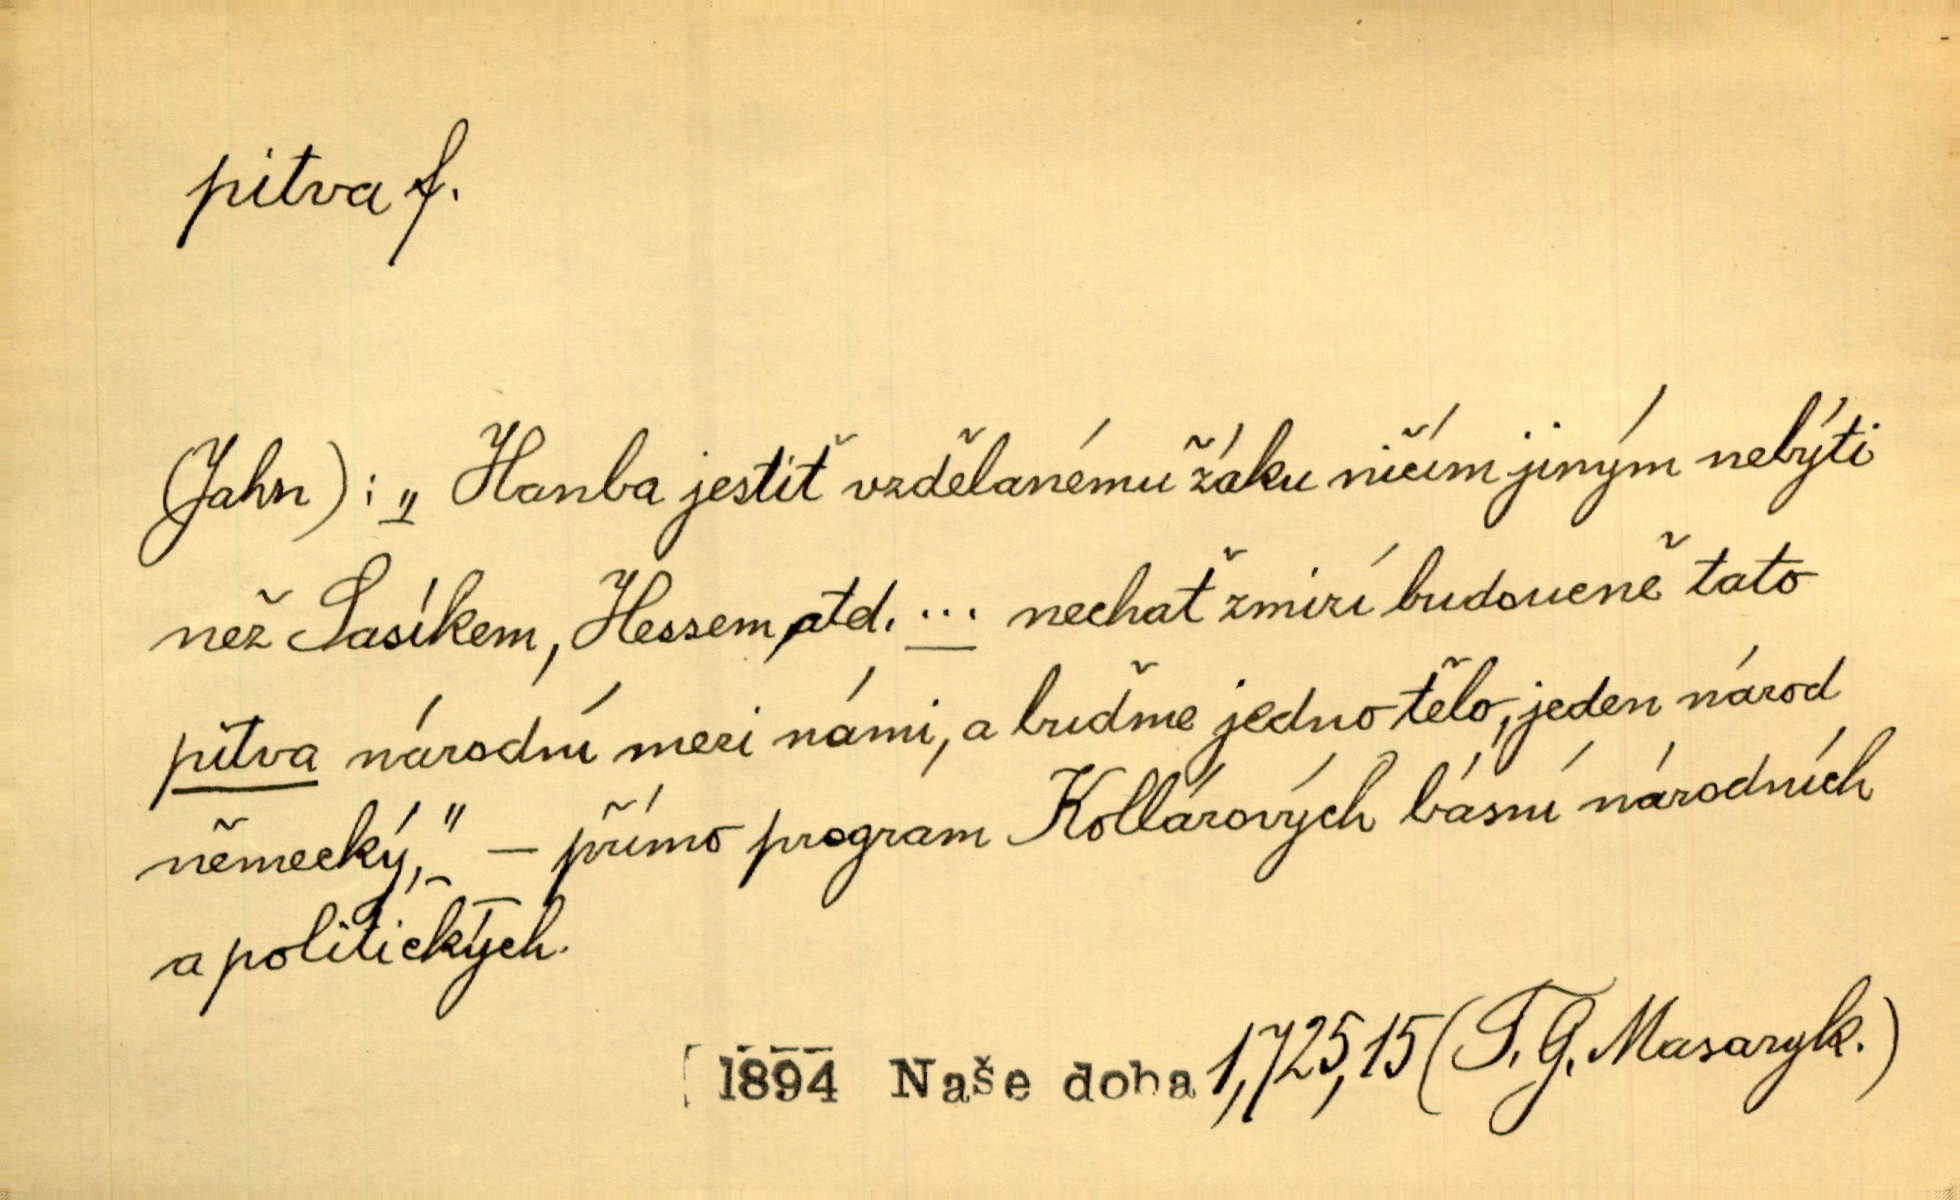 pitva f.
(Jahn): „Hanba jestiť vzdělanému žáku ničím jiným nebýti
než Sasíkem, Hessem, atd. ... nechať zmizí budoucně tato
pitva národní mezi námi, a buďme jedno tělo, jeden národ
německý," – přímo program Kollárových básní národních
a politických.
1894 Naše doba 1,725,15 (T. G. Masaryk.)